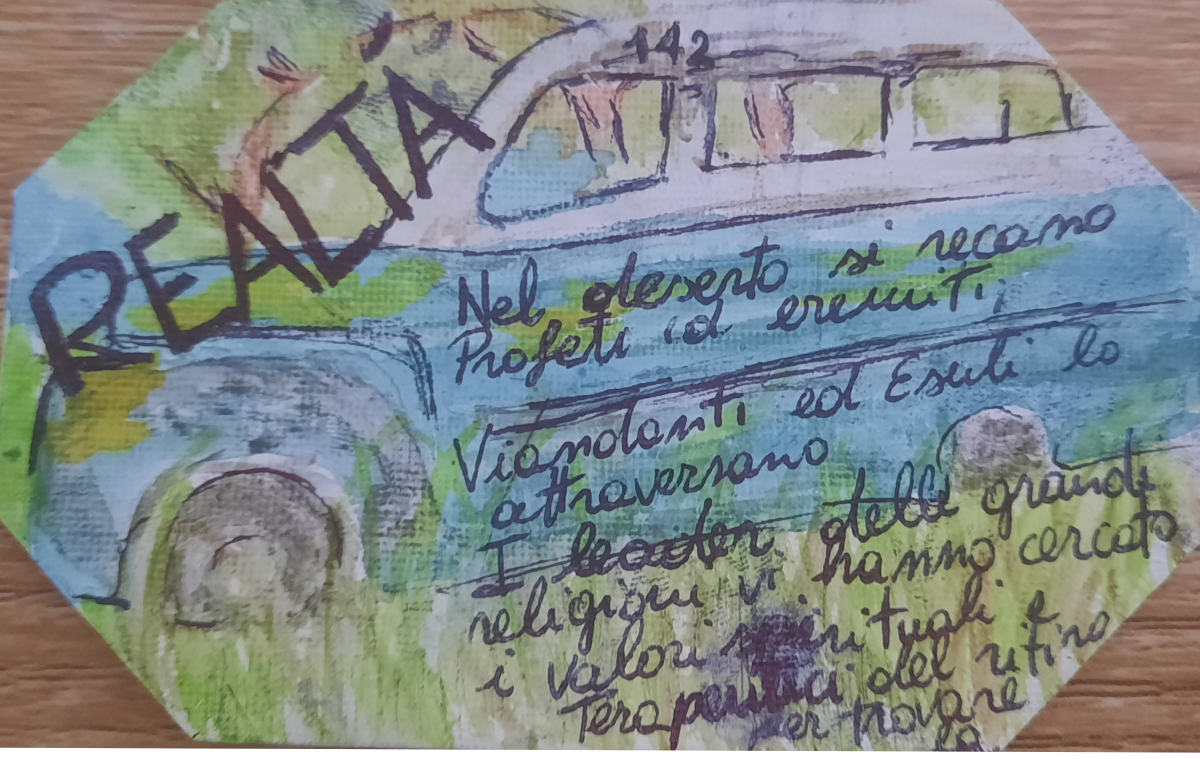 142
REALTÀ
Nel deserto si recano
Profeti ed eremiti,
Viandanti ed Esuli lo
attraversano
I leader delle grandi
religioni vi hanno cercato
i valori spirituali e
Terapeutici del ritiro
per trovare
la